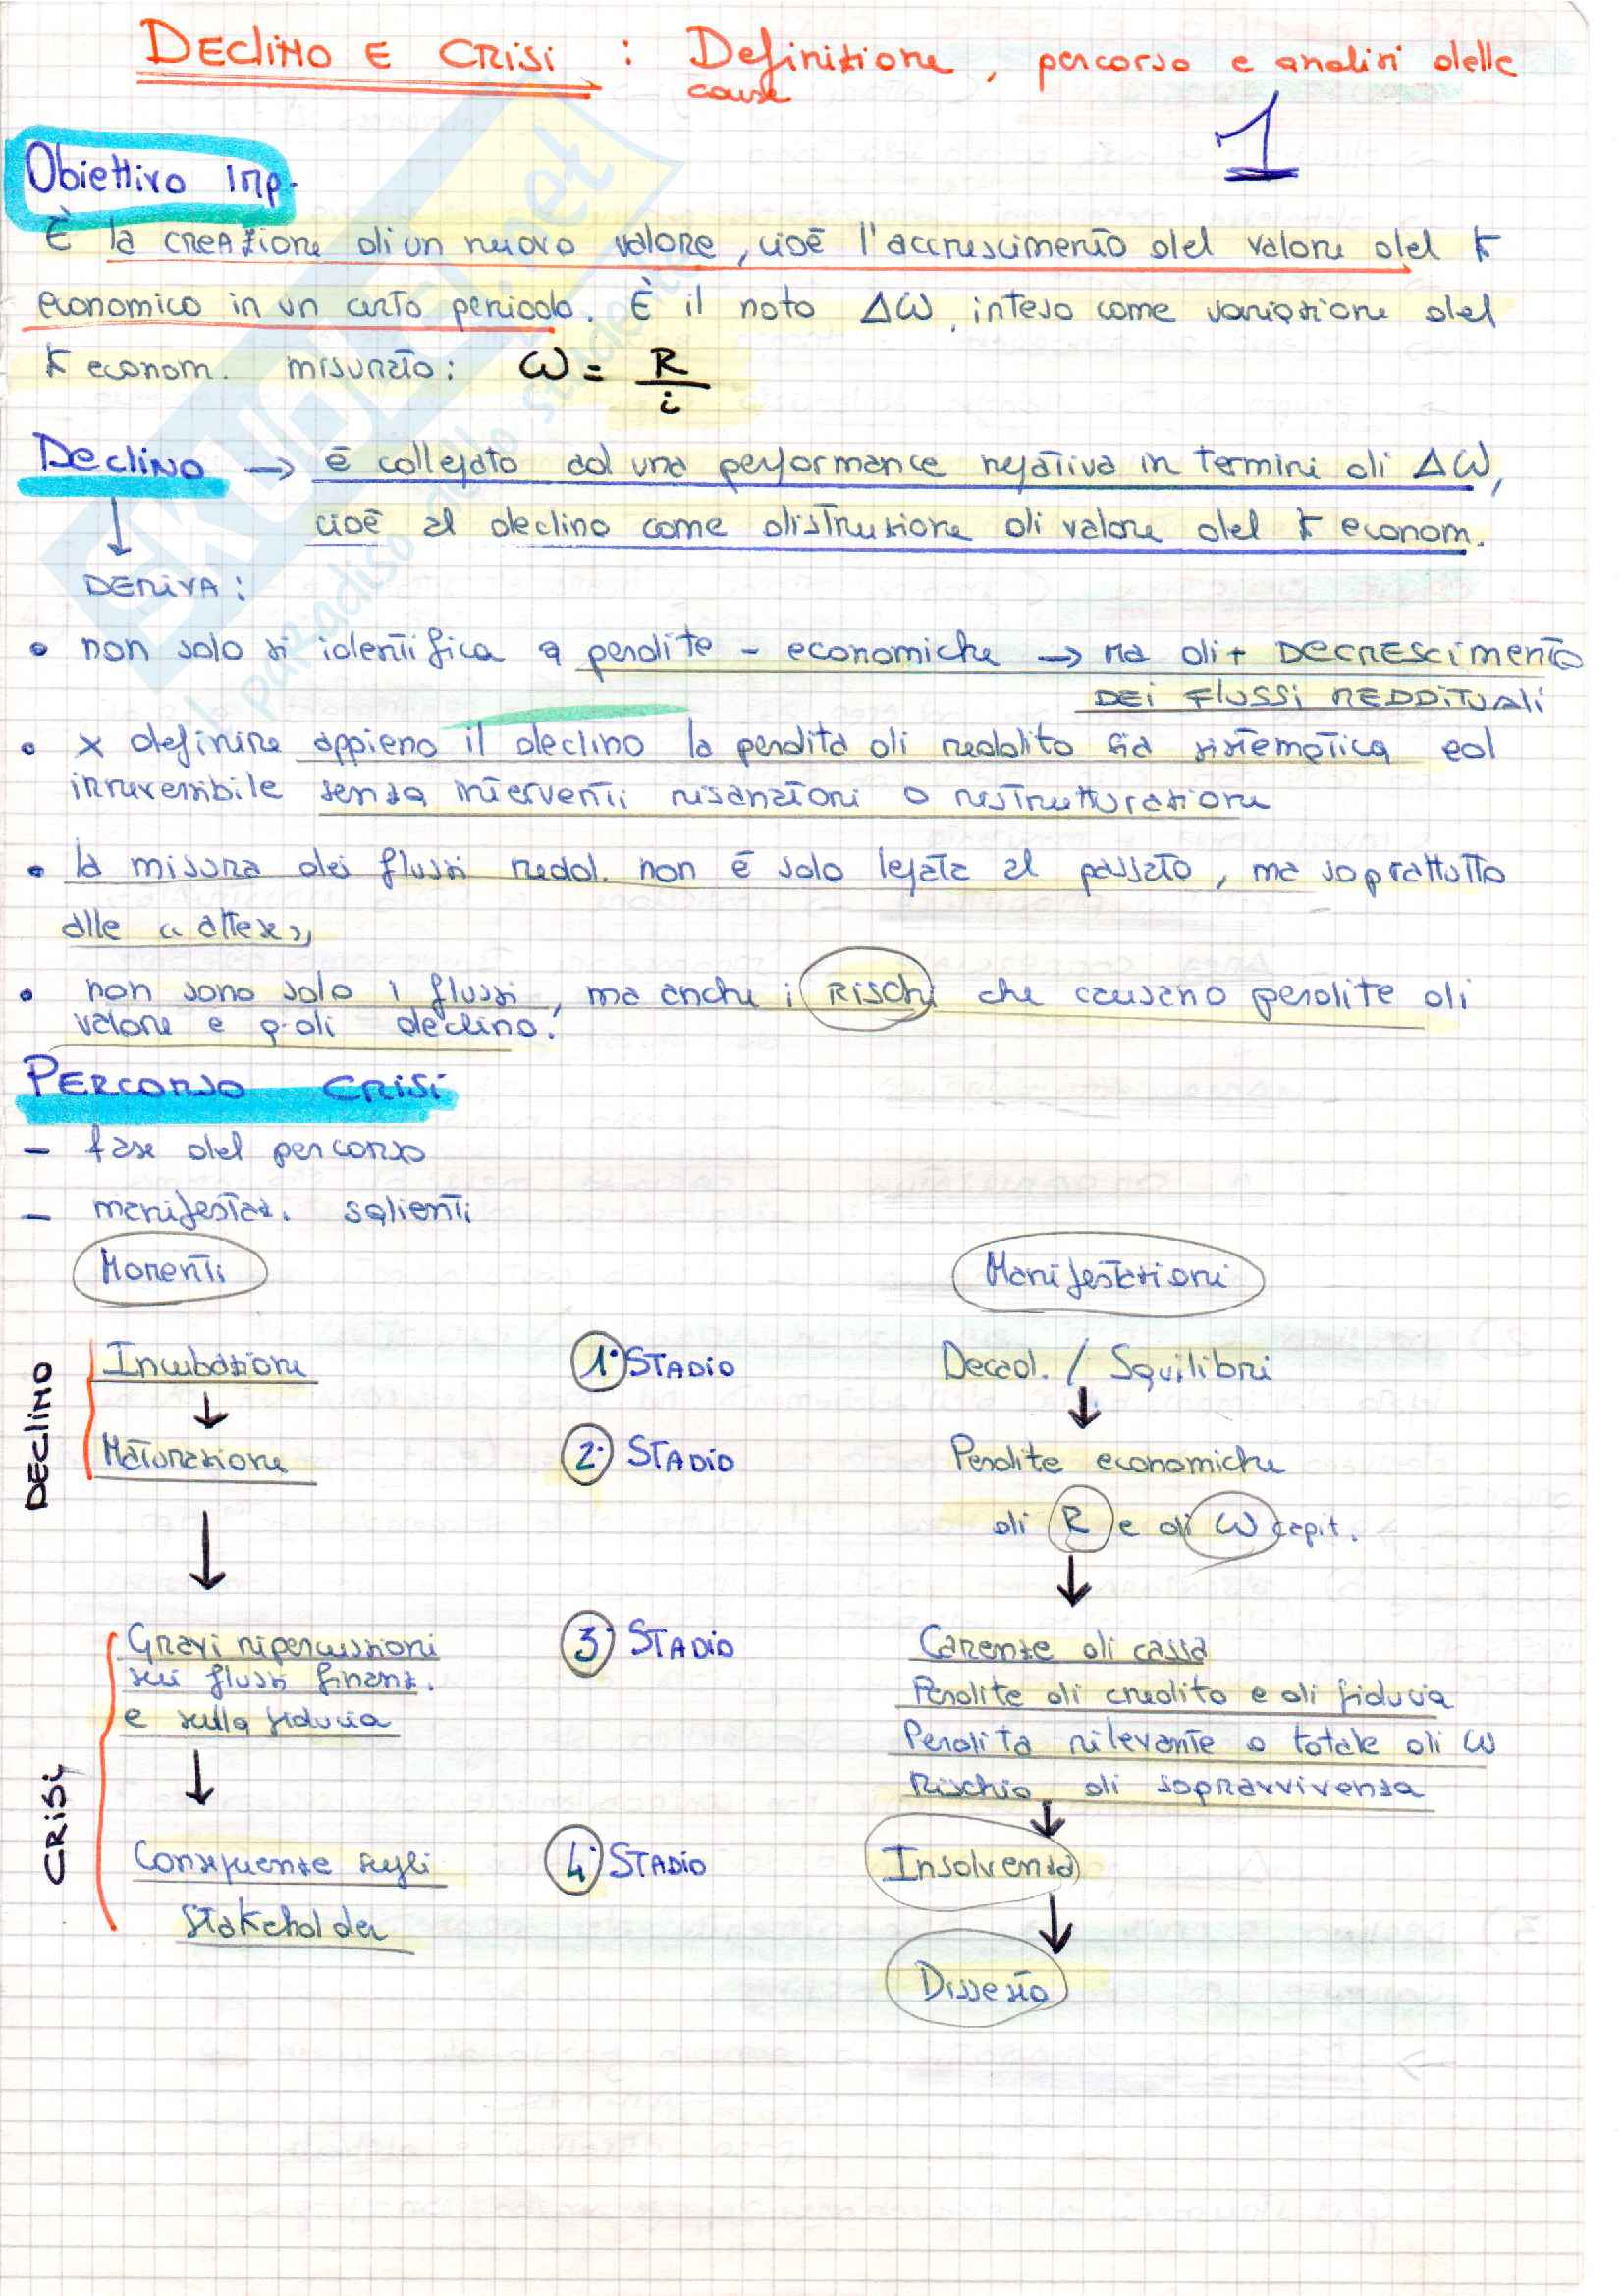 DECLINO E CRISI : Definizione, percorso e analisi delle
cause
1
Obiettivo imp.
È la creazione di un nuovo valore, cioè l'accrescimento del valore del K
economico in un certo periodo. È il noto ΔW, inteso come variazione del
K econom. misurato: W = R/i
Declino → è collegato ad una performance negativa in termini di ΔW,
cioè al declino come distruzione di valore del K econom.
↓
DERIVA:
• non solo si identifica a perdite - economiche → ma di + DECRESCIMENTO
DEI FLUSSI REDDITUALI
• x definire appieno il declino la perdita di reddito sia sistematica ed
irreversibile senza interventi risanatori o ristrutturazione
• la misura dei flussi redd. non è solo legata al passato, ma soprattutto
alle "attese"
• non sono solo i flussi, ma anche i RISCHI che causano perdite di
valore e q.di declino.
PERCORSO CRISI
- fase del percorso
- manifestaz. salienti
Momenti Manifestazioni
DECLINO
Incubazione 1° STADIO Decad. / Squilibri
↓ ↓
Maturazione 2° STADIO Perdite economiche
di R e di W capit.
↓ ↓
CRISI
Gravi ripercussioni 3° STADIO Carenze di cassa
sui flussi finanz. Perdite di credito e di fiducia
e sulla fiducia Perdita rilevante o totale di W
Rischio di sopravvivenza
↓ ↓
Conseguenze sugli 4° STADIO Insolvenza
stakeholder ↓
Dissesto
SKUOLA.net
il paradiso dello studente